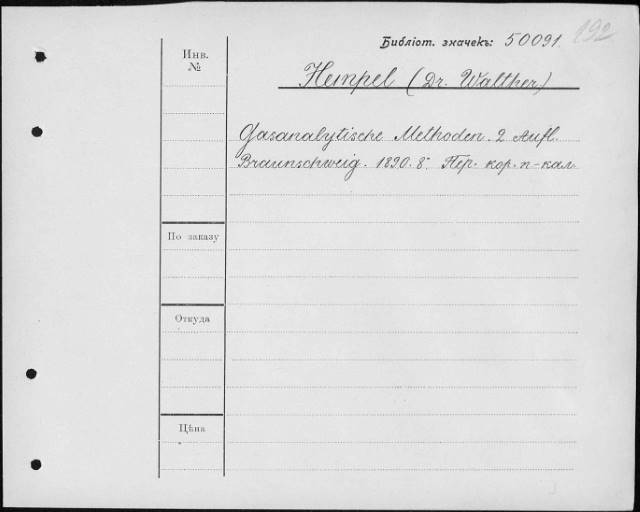 Библіот. значекъ: 50091. 192
Инв.
№
Hempel (Dr. Walther)
Gasanalytische Methoden. 2 Aufl.
Braunschweig. 1890. 8°. Пер. кор. п-кал.
По заказу
Откуда
Цѣна